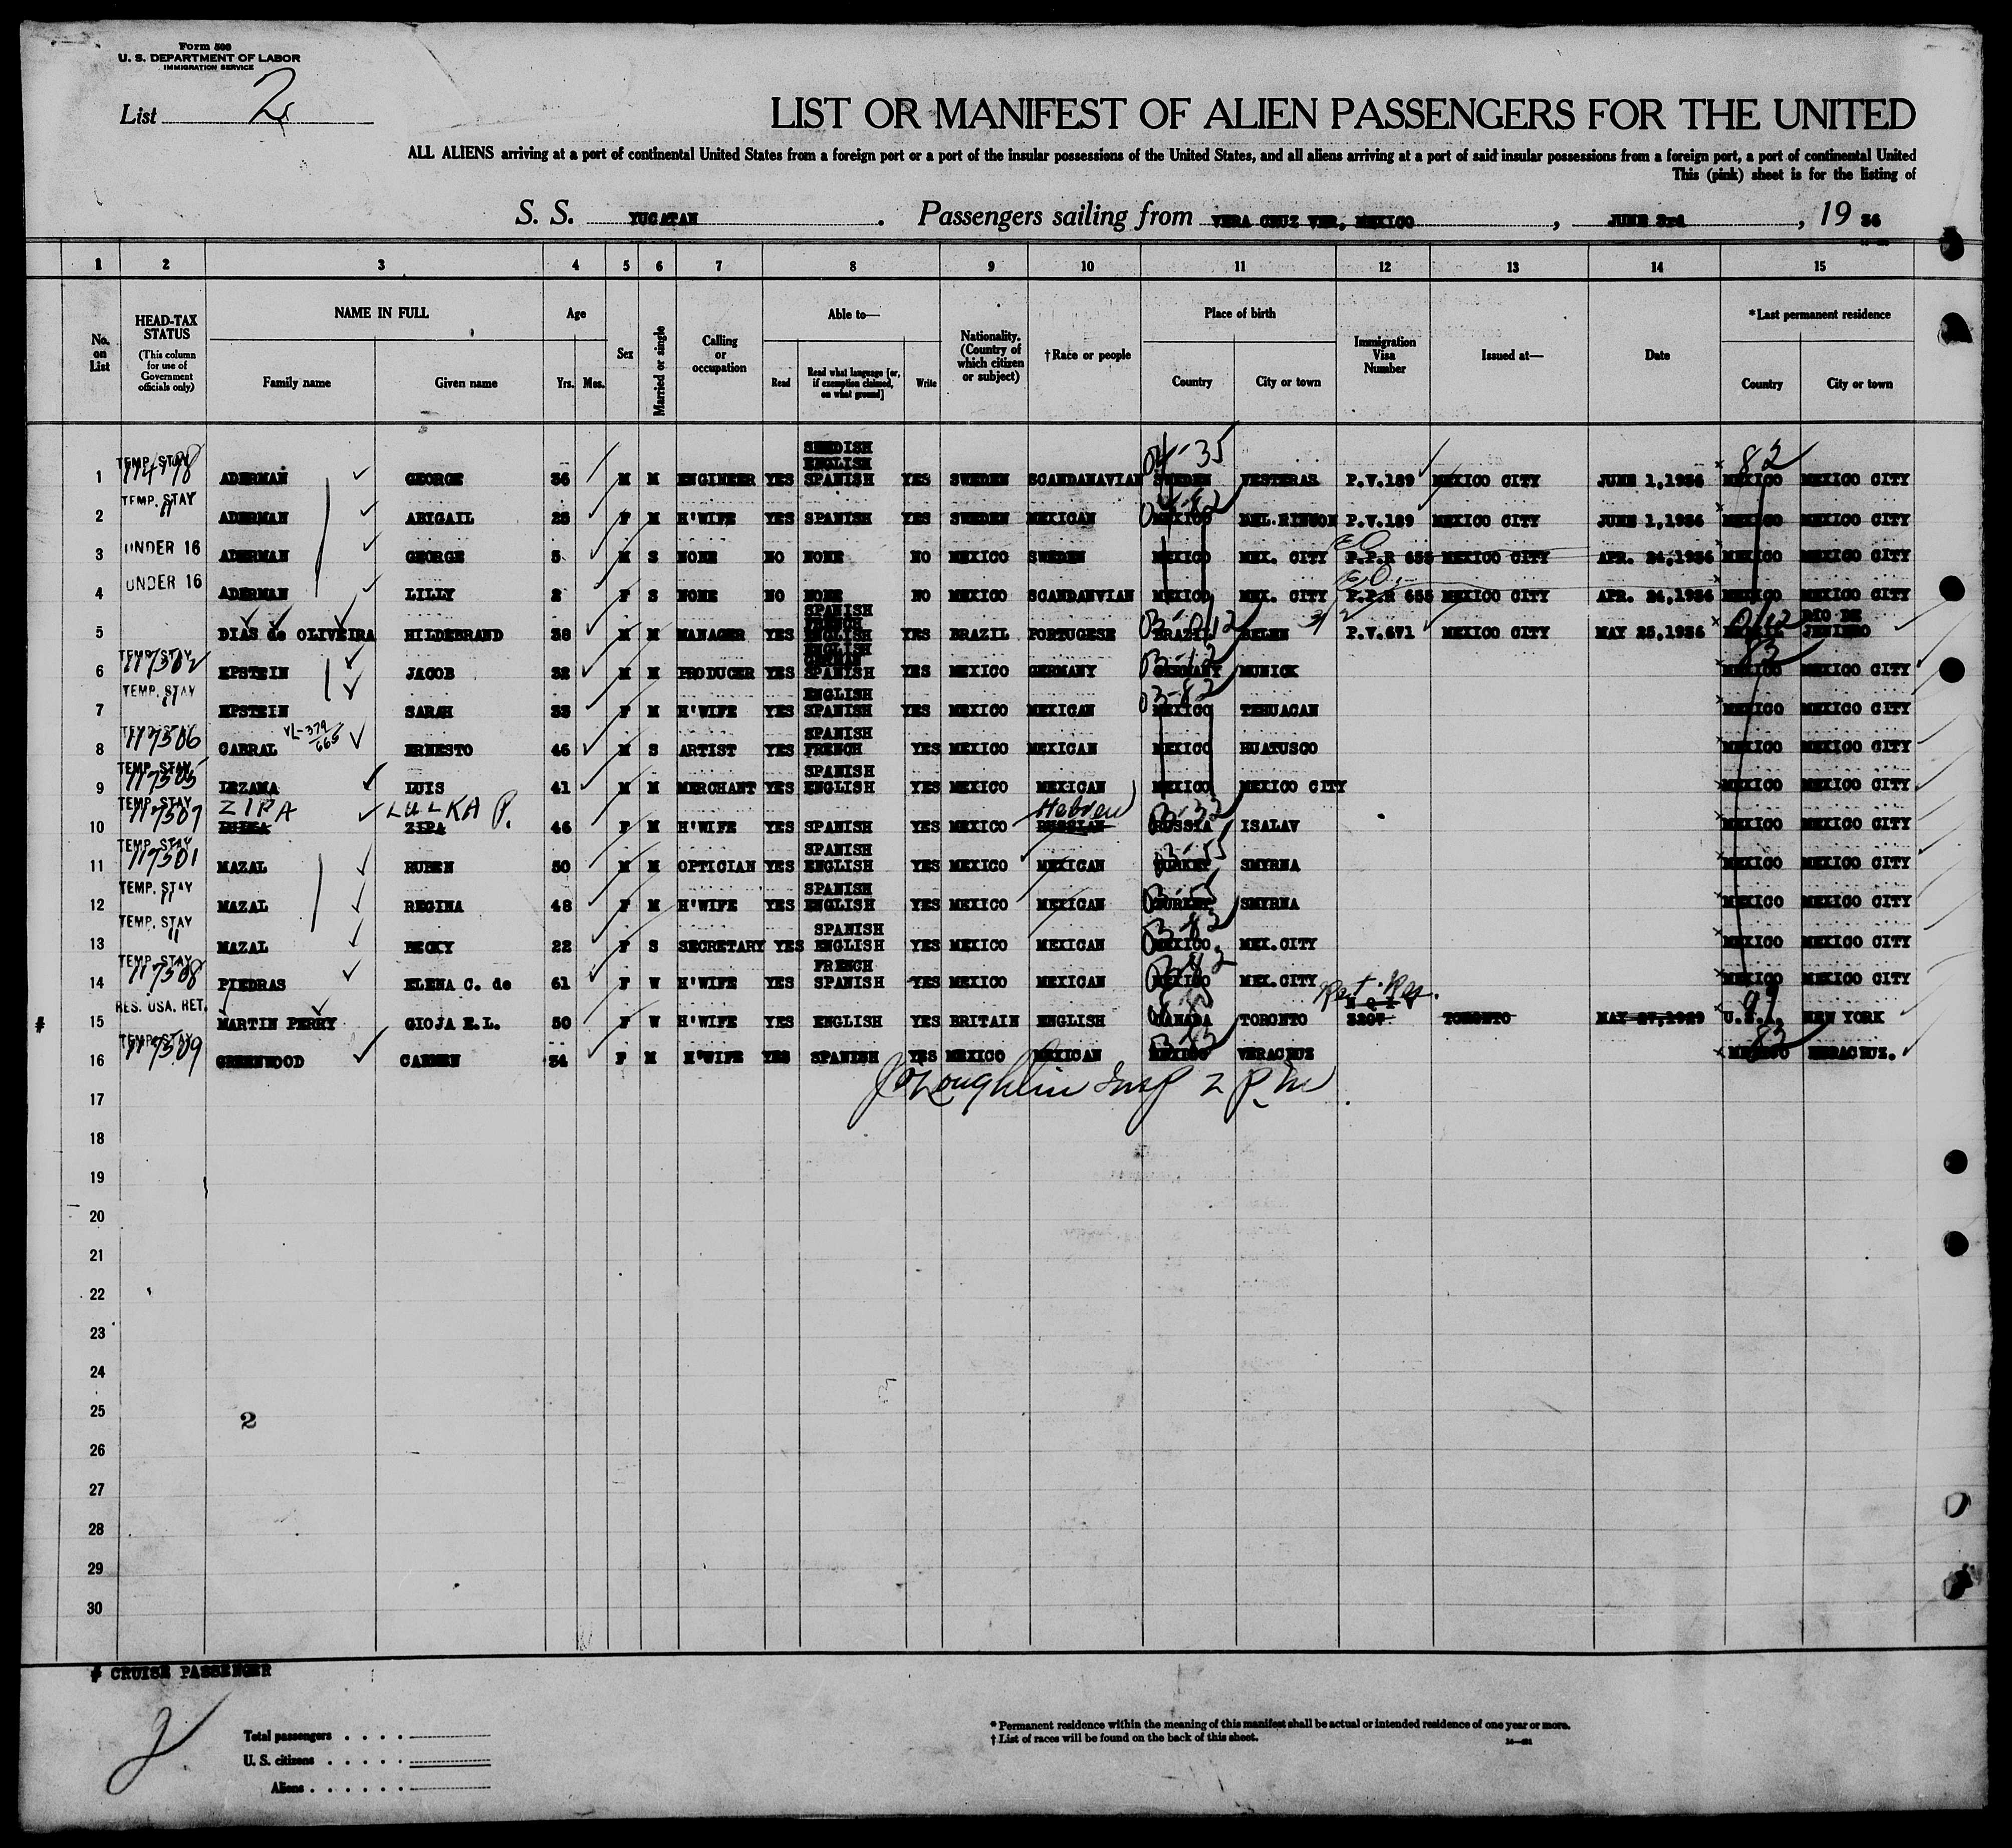 Form 500
U. S. DEPARTMENT OF LABOR
IMMIGRATION SERVICE
List 2
LIST OR MANIFEST OF ALIEN PASSENGERS FOR THE UNITED
ALL ALIENS arriving at a port of continental United States from a foreign port or a port of the insular possessions of the United States, and all aliens arriving at a port of said insular possessions from a foreign port, a port of continental United
This (pink) sheet is for the listing of
S. S. YUCATAN. Passengers sailing from VERA CRUZ VER, MEXICO, JUNE 3rd, 19 36
1 2 3 4 5 6 7 8 9 10 11 12 13 14 15
No. on List
HEAD-TAX STATUS (This column for use of Government officials only)
NAME IN FULL
Family name Given name
Age
Yrs. Mos.
Sex
Married or single
Calling or occupation
Able to—
Read
Read what language [or, if exemption claimed, on what ground]
Write
Nationality. (Country of which citizen or subject)
†Race or people
Place of birth
Country City or town
Immigration Visa Number
Issued at—
Date
*Last permanent residence
Country City or town
1 TEMP. STAY ADERMAN GEORGE 36 M M ENGINEER YES SWEDISH ENGLISH SPANISH YES SWEDEN SCANDANAVIAN 04-35 SWEDEN VESTERAS P.V.189 MEXICO CITY JUNE 1,1936 82 MEXICO MEXICO CITY
2 TEMP. STAY " ADERMAN ABIGAIL 25 F M H'WIFE YES SPANISH YES SWEDEN MEXICAN MEXICO DEL.RINCON P.V.189 MEXICO CITY JUNE 1,1936 MEXICO MEXICO CITY
3 UNDER 16 ADERMAN GEORGE 5 M S NONE NO NONE NO MEXICO SWEDEN MEXICO MEX. CITY P.P.R 655 MEXICO CITY APR. 24,1936 MEXICO MEXICO CITY
4 UNDER 16 ADERMAN LILLY 2 F S NONE NO NONE NO MEXICO SCANDANVIAN MEXICO MEX. CITY P.P.R 655 MEXICO CITY APR. 24,1936 MEXICO MEXICO CITY
5 DIAS de OLIVEIRA HILDEBRAND 38 M M MANAGER YES SPANISH FRENCH ENGLISH YES BRAZIL PORTUGESE BRAZIL BELEM 3/2 P.V.671 MEXICO CITY MAY 25,1936 BRAZIL RIO DE JENIERO
6 TEMP. STAY 117302 EPSTEIN JACOB 32 M M PRODUCER YES ENGLISH GERMAN SPANISH YES MEXICO GERMANY 03-12 GERMANY MUNICK 83 MEXICO MEXICO CITY
7 TEMP. STAY " EPSTEIN SARAH 33 F M H'WIFE YES ENGLISH SPANISH YES MEXICO MEXICAN 03-82 MEXICO TEHUACAN MEXICO MEXICO CITY
8 117306 CABRAL VL-379/665 ERNESTO 46 M S ARTIST YES SPANISH FRENCH YES MEXICO MEXICAN MEXICO HUATUSCO MEXICO MEXICO CITY
9 TEMP. STAY 117305 LEZAMA LUIS 41 M M MERCHANT YES SPANISH ENGLISH YES MEXICO MEXICAN MEXICO MEXICO CITY MEXICO MEXICO CITY
10 TEMP. STAY 117307 ZIPA LULKA P. ZIPA 46 F M H'WIFE YES SPANISH YES MEXICO Hebrew RUSSIAN RUSSIA ISALAV MEXICO MEXICO CITY
11 TEMP. STAY 117301 MAZAL RUBEN 50 M M OPTICIAN YES SPANISH ENGLISH YES MEXICO MEXICAN TURKEY SMYRNA MEXICO MEXICO CITY
12 TEMP. STAY " MAZAL REGINA 48 F M H'WIFE YES SPANISH ENGLISH YES MEXICO MEXICAN TURKEY SMYRNA MEXICO MEXICO CITY
13 TEMP. STAY " MAZAL BECKY 22 F S SECRETARY YES SPANISH ENGLISH YES MEXICO MEXICAN MEXICO MEX.CITY MEXICO MEXICO CITY
14 TEMP. STAY 117308 PIEDRAS ELENA C. de 61 F W H'WIFE YES FRENCH SPANISH YES MEXICO MEXICAN MEXICO MEX.CITY MEXICO MEXICO CITY
# 15 RES. USA. RET. MARTIN PERRY GIOJA E.L. 50 F W H'WIFE YES ENGLISH YES BRITAIN ENGLISH CANADA TORONTO Ret. Res. N Q I V 3207 TORONTO MAY 27,1929 99 U.S.A. NEW YORK
16 TEMP. STAY 117309 GREENWOOD CARMEN 34 F M H'WIFE YES SPANISH YES MEXICO MEXICAN MEXICO VERACRUZ 83 MEXICO VERACRUZ.
17
18
19
20
21
22
23
24
25
2
26
27
28
29
30
# CRUISE PASSENGER
2
Total passengers
U. S. citizens
Aliens
* Permanent residence within the meaning of this manifest shall be actual or intended residence of one year or more.
† List of races will be found on the back of this sheet.